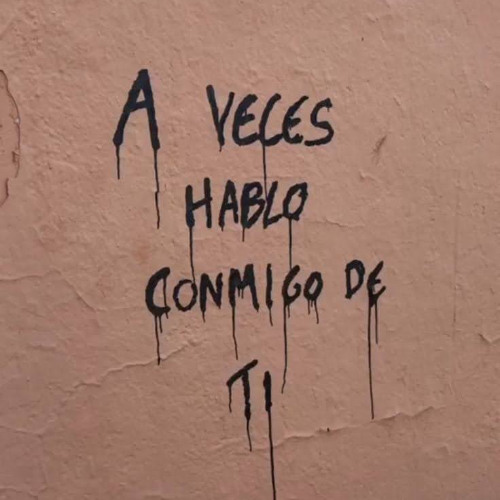 A VECES
HABLO
CONMIGO DE
TI